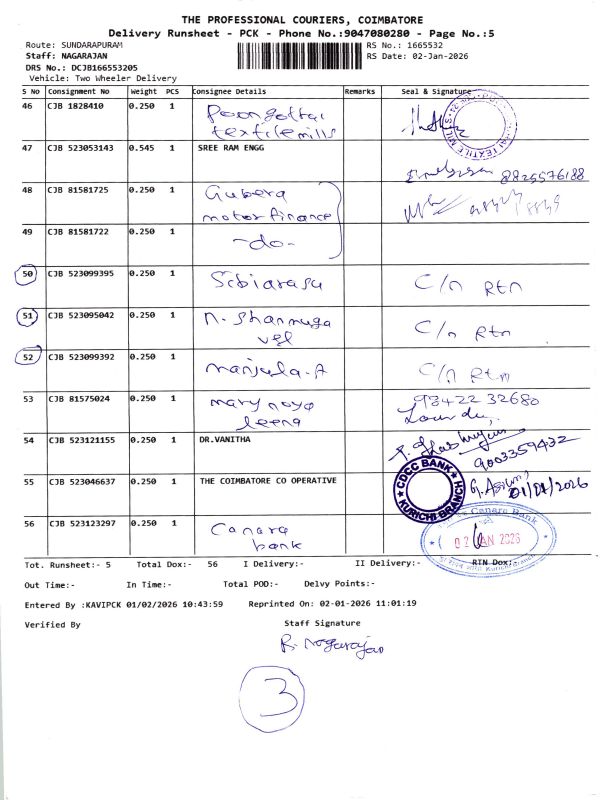 THE PROFESSIONAL COURIERS, COIMBATORE
Delivery Runsheet - PCK - Phone No.:9047080280 - Page No.:5
Route: SUNDARAPURAM RS No.: 1665532
Staff: NAGARAJAN RS Date: 02-Jan-2026
DRS No.: DCJB166553205
Vehicle: Two Wheeler Delivery
S No Consignment No Weight PCS Consignee Details Remarks Seal & Signature
46 CJB 1828410 0.250 1 Poongottai
textile mills
47 CJB 523053143 0.545 1 SREE RAM ENGG
8825576188
48 CJB 81581725 0.250 1 Gubera
motor finance
49 CJB 81581722 0.250 1 -do-
50 CJB 523099395 0.250 1 Sibiarasu C/n Rtn
51 CJB 523095042 0.250 1 n. Shanmuga C/n Rtn
vel
52 CJB 523099392 0.250 1 manjula-A C/n Rtn
53 CJB 81575024 0.250 1 mary naya 93422 32680
leena Lourdu
54 CJB 523121155 0.250 1 DR.VANITHA
9003359432
55 CJB 523046637 0.250 1 THE COIMBATORE CO OPERATIVE
CDCC BANK
KURICHI BRANCH
01/01/2026
56 CJB 523123297 0.250 1 Canara
bank
Canara Bank
02 JAN 2026
Tot. Runsheet:- 5 Total Dox:- 56 I Delivery:- II Delivery:- RTN Dox:-
Out Time:- In Time:- Total POD:- Delvy Points:-
Entered By :KAVIPCK 01/02/2026 10:43:59 Reprinted On: 02-01-2026 11:01:19
Verified By Staff Signature
R. Nagarajan
3